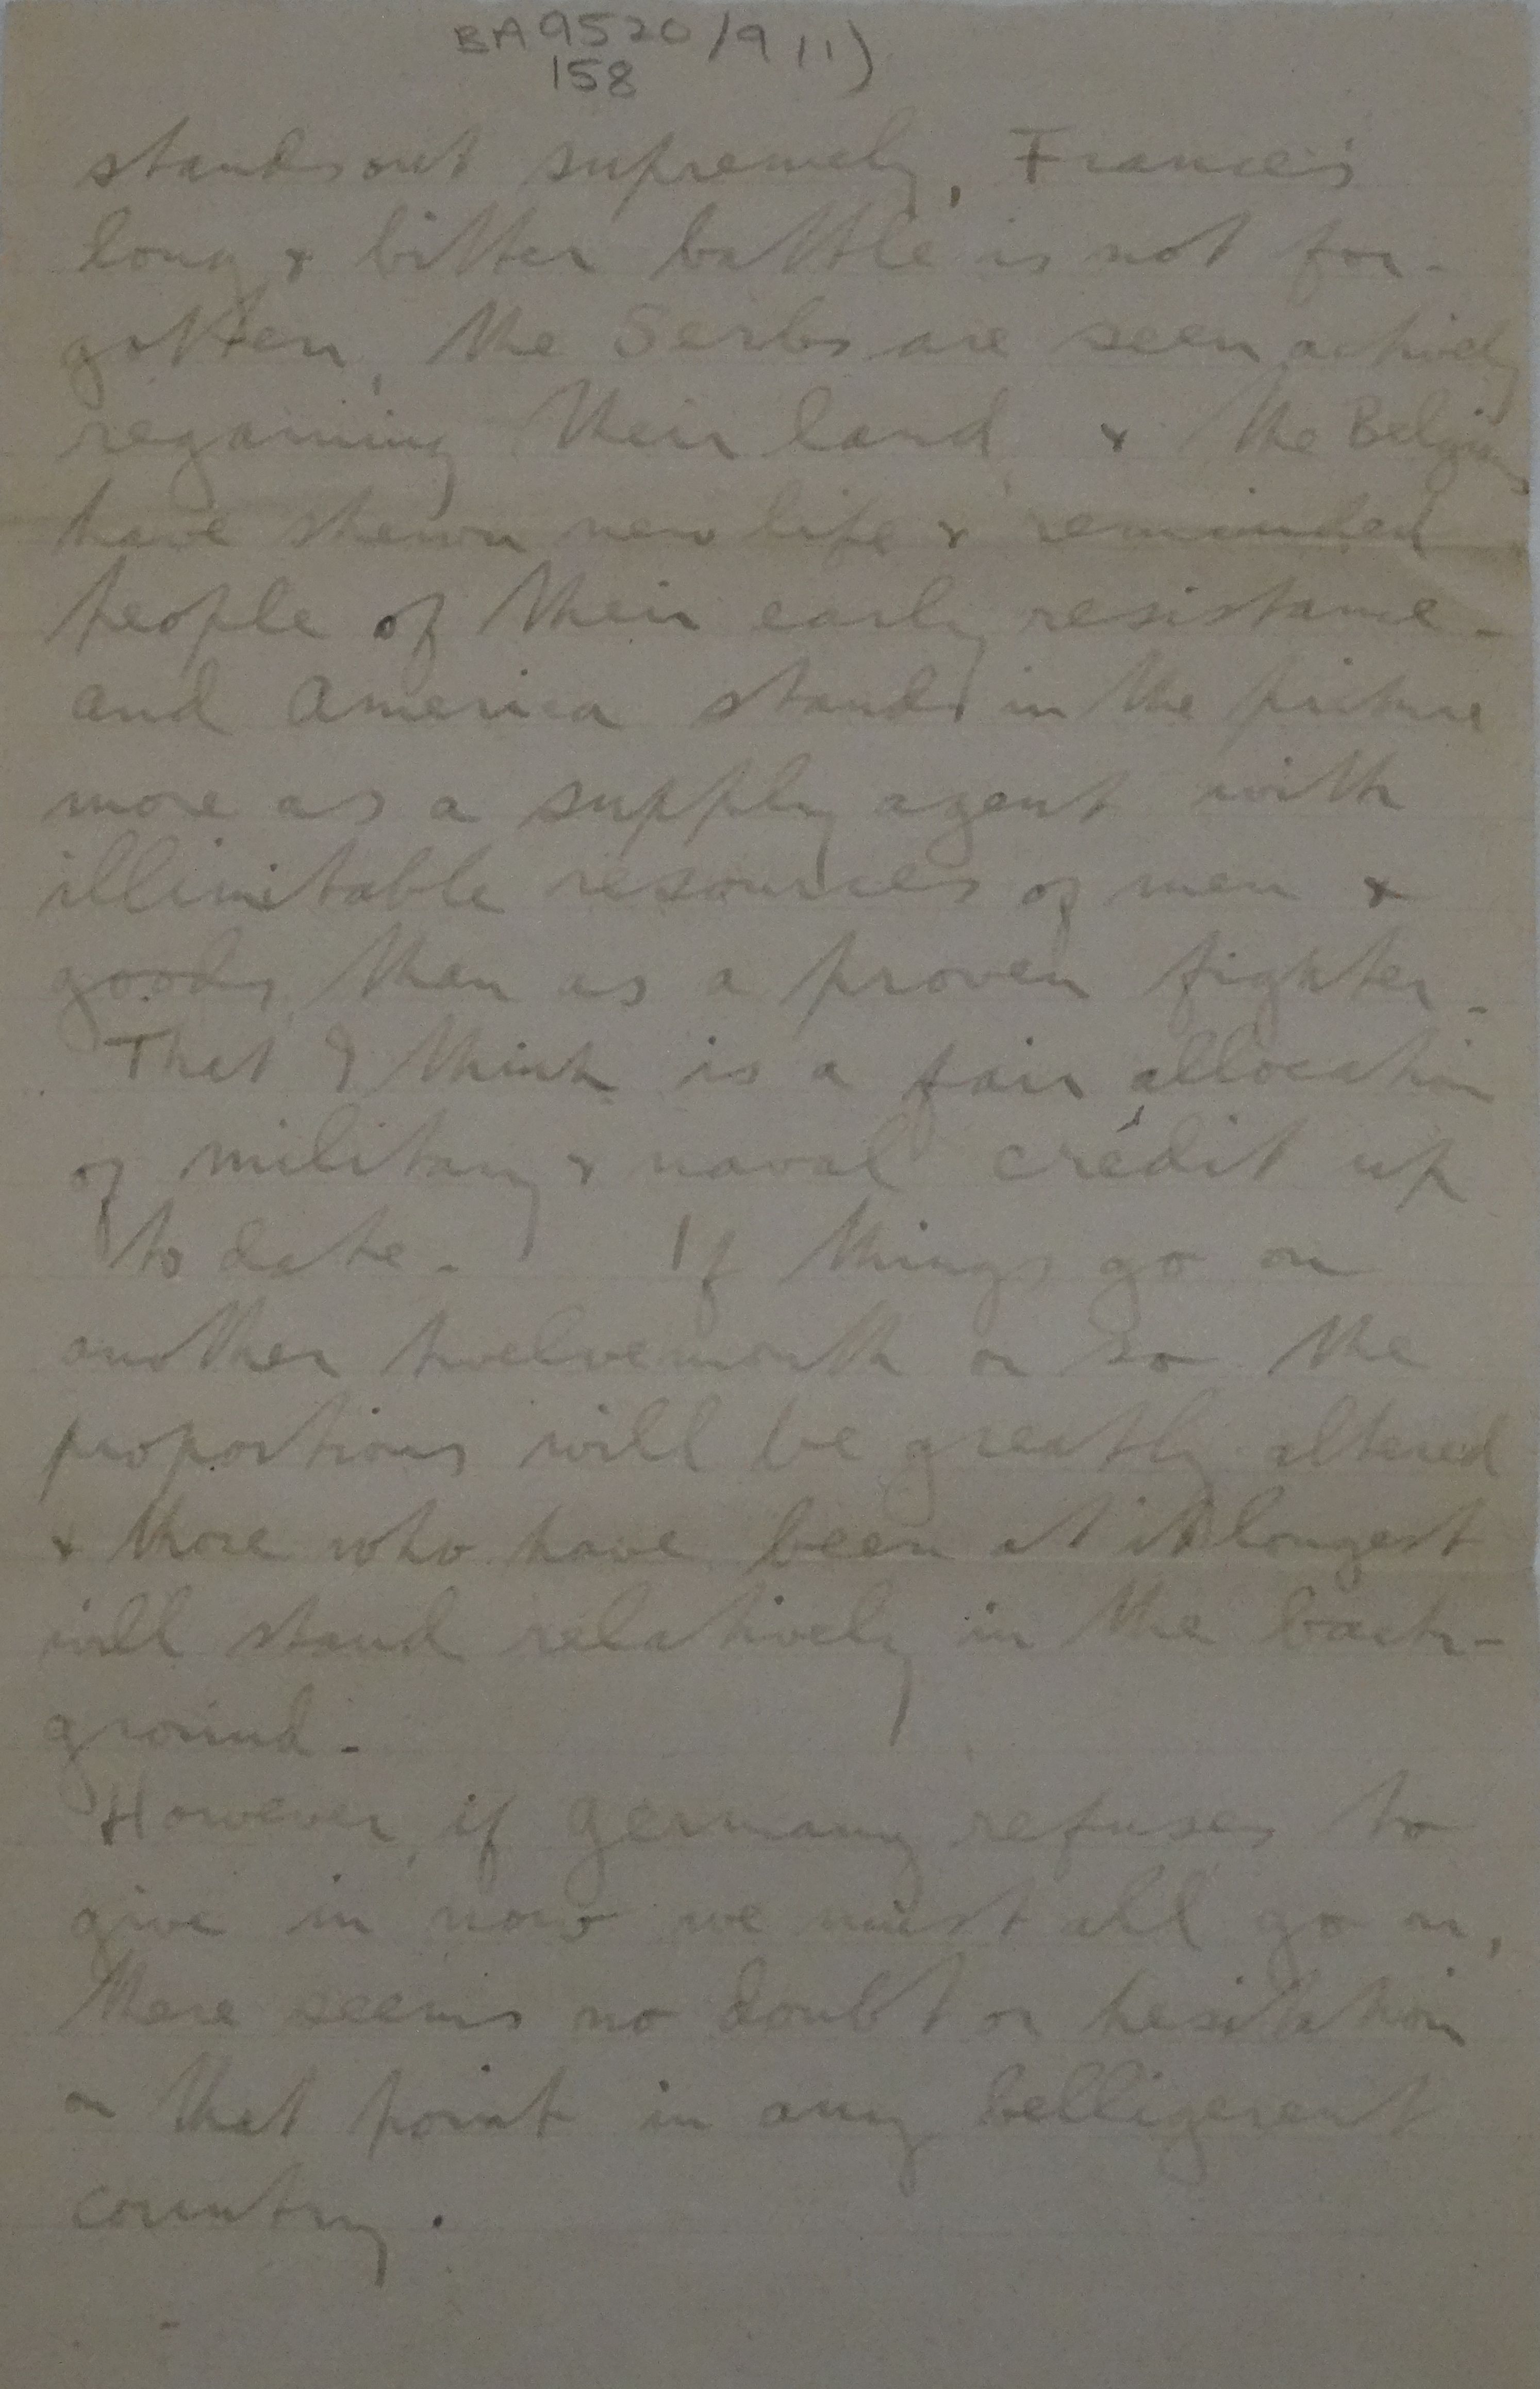 BA9520/9(1)
158
stands out supremely, France's
long & bitter battle is not for-
gotten, the Serbs are seen actively
regaining their land, & the Belgians
have shewn new life & reminded
people of their early resistance -
and America stands in the picture
more as a supply agent with
illimitable resources of men &
goods, than as a proven fighter.
That I think is a fair allocation
of military & naval credit up
to date. If things go on
another twelvemonth or so the
proportions will be greatly altered
& those who have been at it longest
will stand relatively in the back-
ground.
However, if Germany refuses to
give in now we must all go on,
there seems no doubt or hesitation
on that point in any belligerent
country.